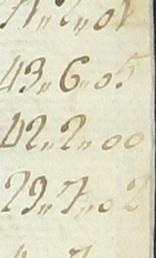 71〃2〃01
43〃6〃05
42〃2〃00
29〃7〃02